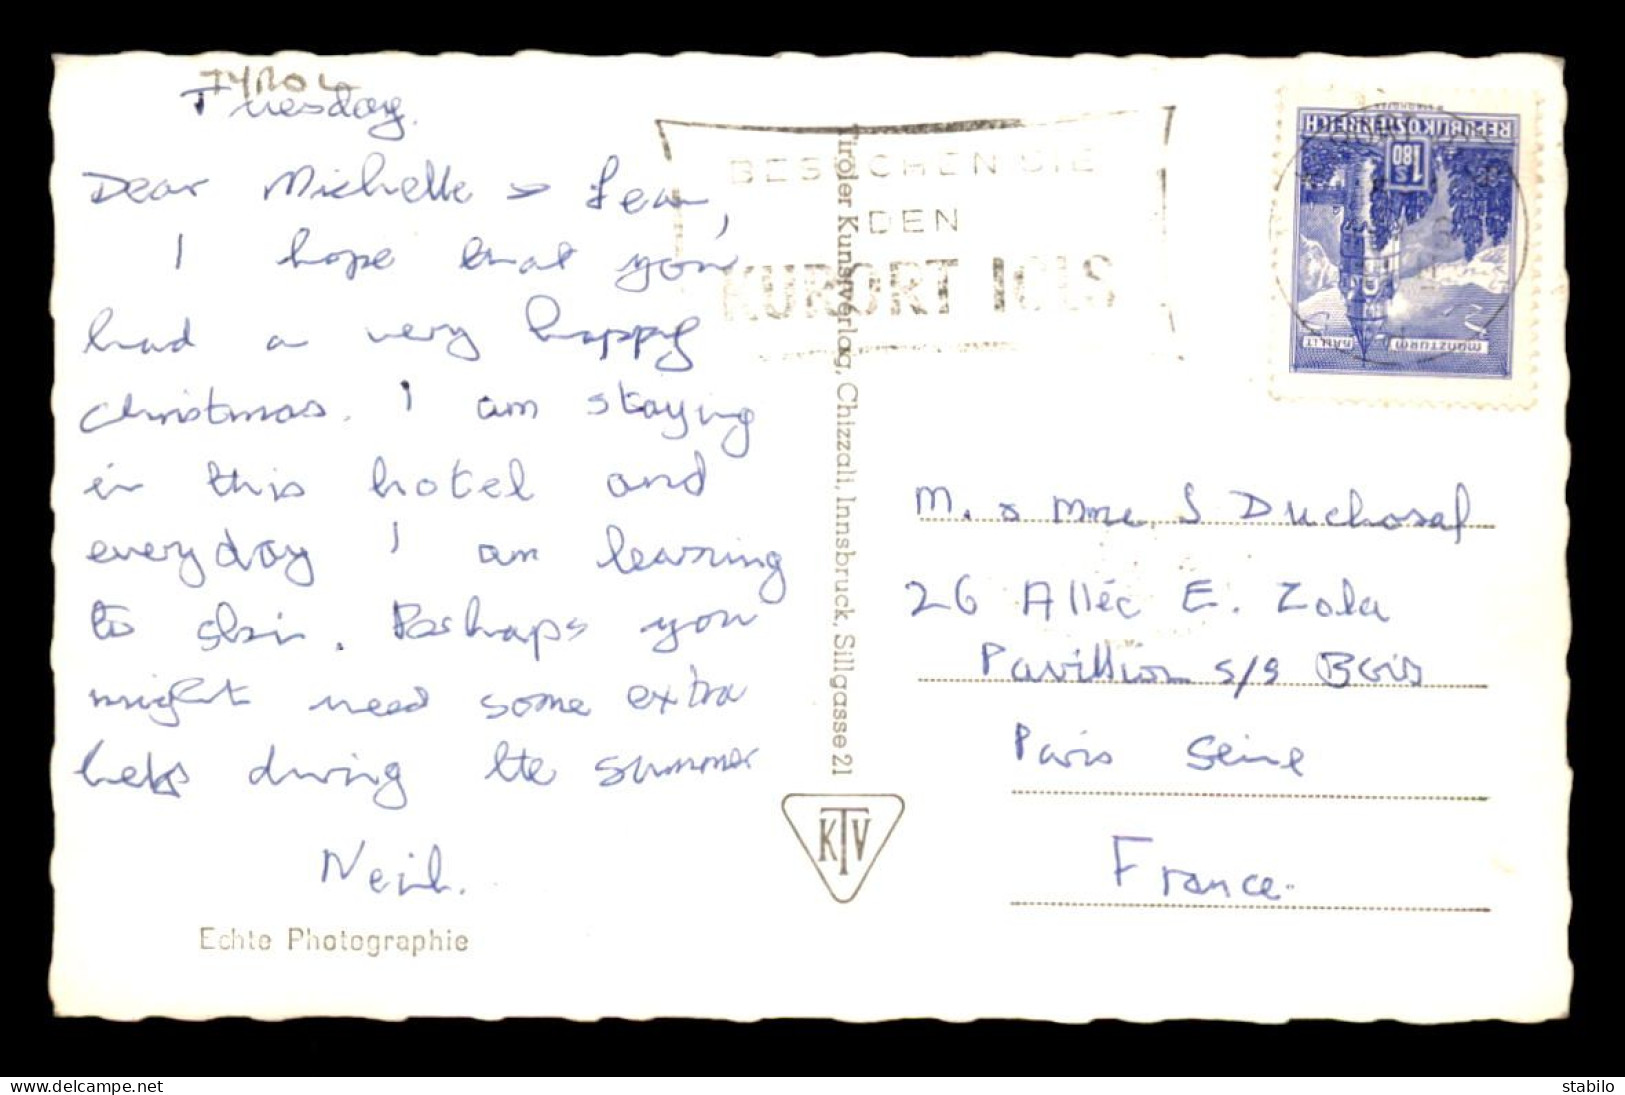 TYROL
Tuesday.
Dear Michelle & Jean,
I hope that you
had a very happy
christmas. I am staying
in this hotel and
everyday I am learning
to skin. Perhaps you
might need some extra
help during the summer
Neil.
Echte Photographie
Tiroler Kunstverlag, Chizzali, Innsbruck, Sillgasse 21
KTV
BESUCHEN SIE
DEN
KURORT IGLS
REPUBLIK ÖSTERREICH
1 S 80
MÜNZTURM
HALL I T
M. & Mme. J Duchosal
26 Allée E. Zola
Pavillion s/s Bois
Paris Seine
France.
delcampe.net
stabilo